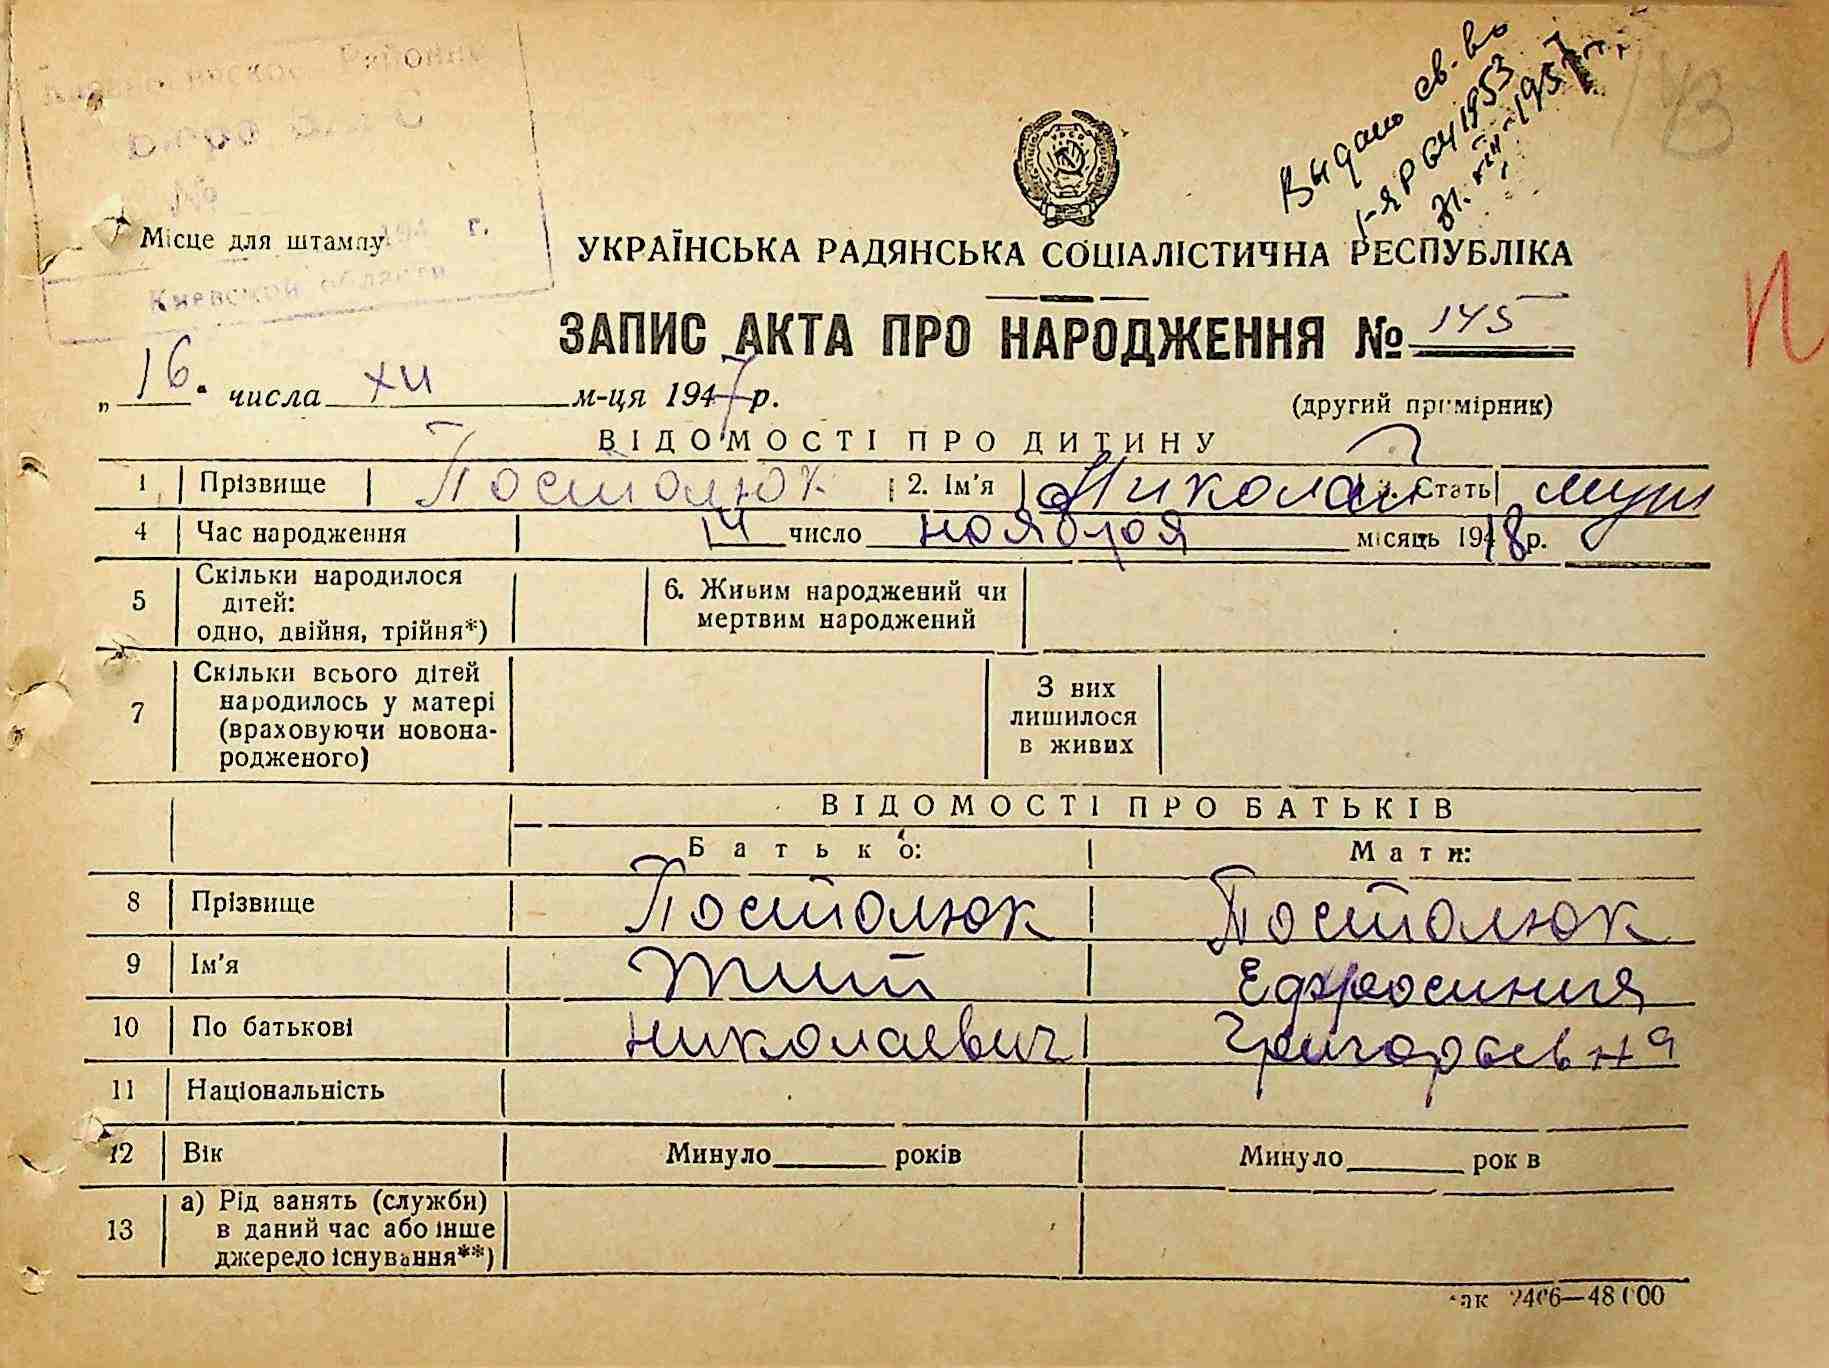 Районн
Бюро ЗАГС
№
194 г.
Киевской области
Выдано св-во
1953
143
Місце для штампу
УКРАЇНСЬКА РАДЯНСЬКА СОЦІАЛІСТИЧНА РЕСПУБЛІКА
ЗАПИС АКТА ПРО НАРОДЖЕННЯ № 145
„16“ числа XII м-ця 1947 р.
(другий примірник)
ВІДОМОСТІ ПРО ДИТИНУ
1 Прізвище Постолюк 2. Ім'я Николай 3. Стать муж
4 Час народження 14 число ноября місяць 1948 р.
5 Скільки народилося дітей: одно, двійня, трійня*) 6. Живим народжений чи мертвим народжений
7 Скільки всього дітей народилось у матері (враховуючи новонародженого) З них лишилося в живих
ВІДОМОСТІ ПРО БАТЬКІВ
Батько: Мати:
8 Прізвище Постолюк Постолюк
9 Ім'я Тит Ефросиния
10 По батькові Николаевич Григорьевна
11 Національність
12 Вік Минуло років Минуло рок в
13 а) Рід занять (служби) в даний час або інше джерело існування**)